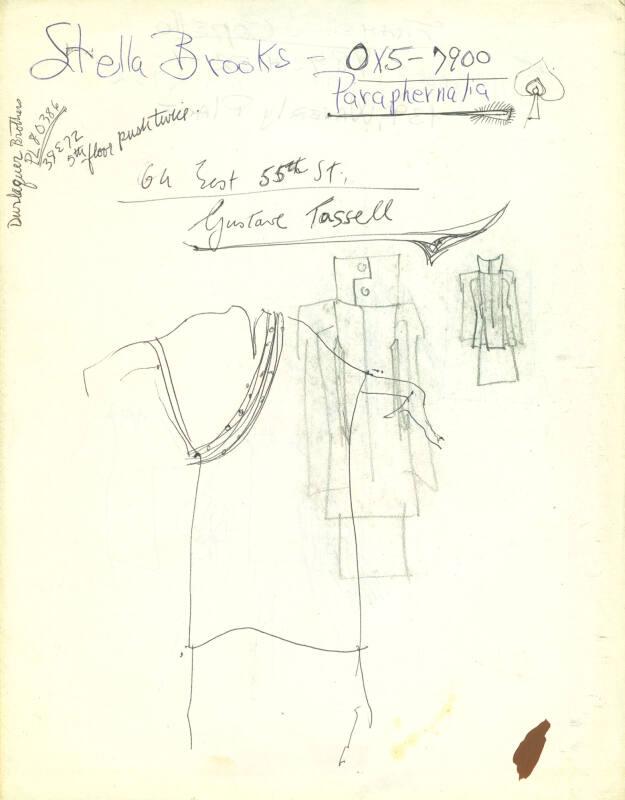 Stella Brooks - OX5-7900
Paraphernalia
Durlaguer Brothers
PL 80386
39 E 72
5th floor push twice.
64 East 55th St.
Gustave Tassell